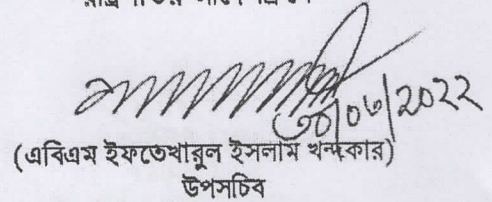 ৩০/০৬/2022
(এবিএম ইফতেখারুল ইসলাম খন্দকার)
উপসচিব